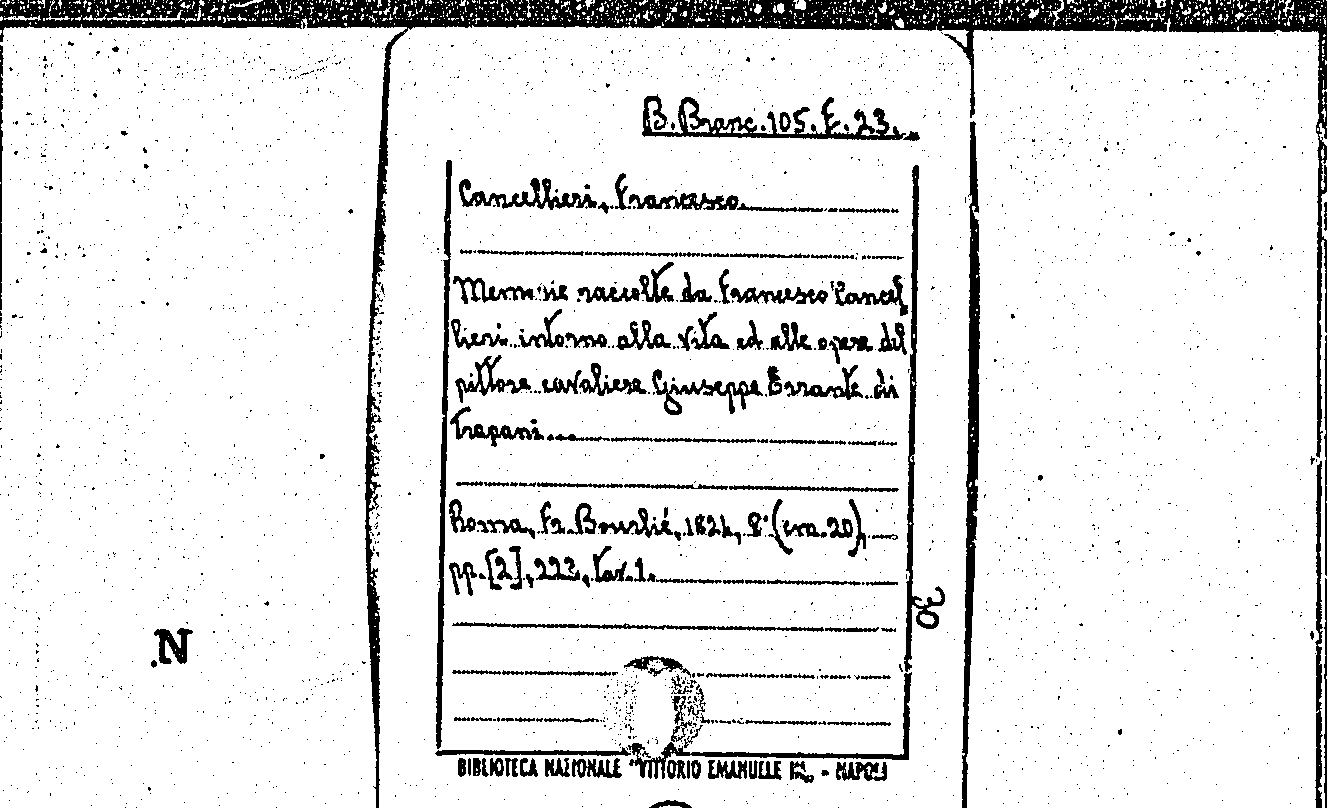 B. Branc. 105. E. 23.
Cancellieri, Francesco
Memorie raccolte da Francesco Cancel
lieri intorno alla vita ed alle opere del
pittore cavaliere Giuseppe Errante di
Trapani...
Roma, Fr. Bourlié, 1824, 8° (cm. 20),
pp. [2], 222, tav. 1.
30
N
BIBLIOTECA NAZIONALE "VITTORIO EMANUELE III„ - NAPOLI